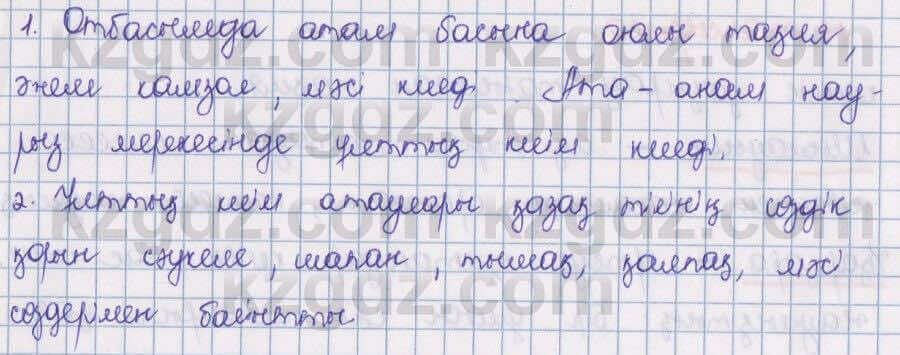 1. Отбасымда атам басына оюлы тақия,
әжем камзол, мәсі киед. Ата - анам нау-
рыз мерекесінде ұлттық киім киеді.
2. Ұлттық киім атаулары қазақ тілінің сөздік
қорын сәукеле, шапан, тымақ, қалпақ, мәсі
сөздермен байытты